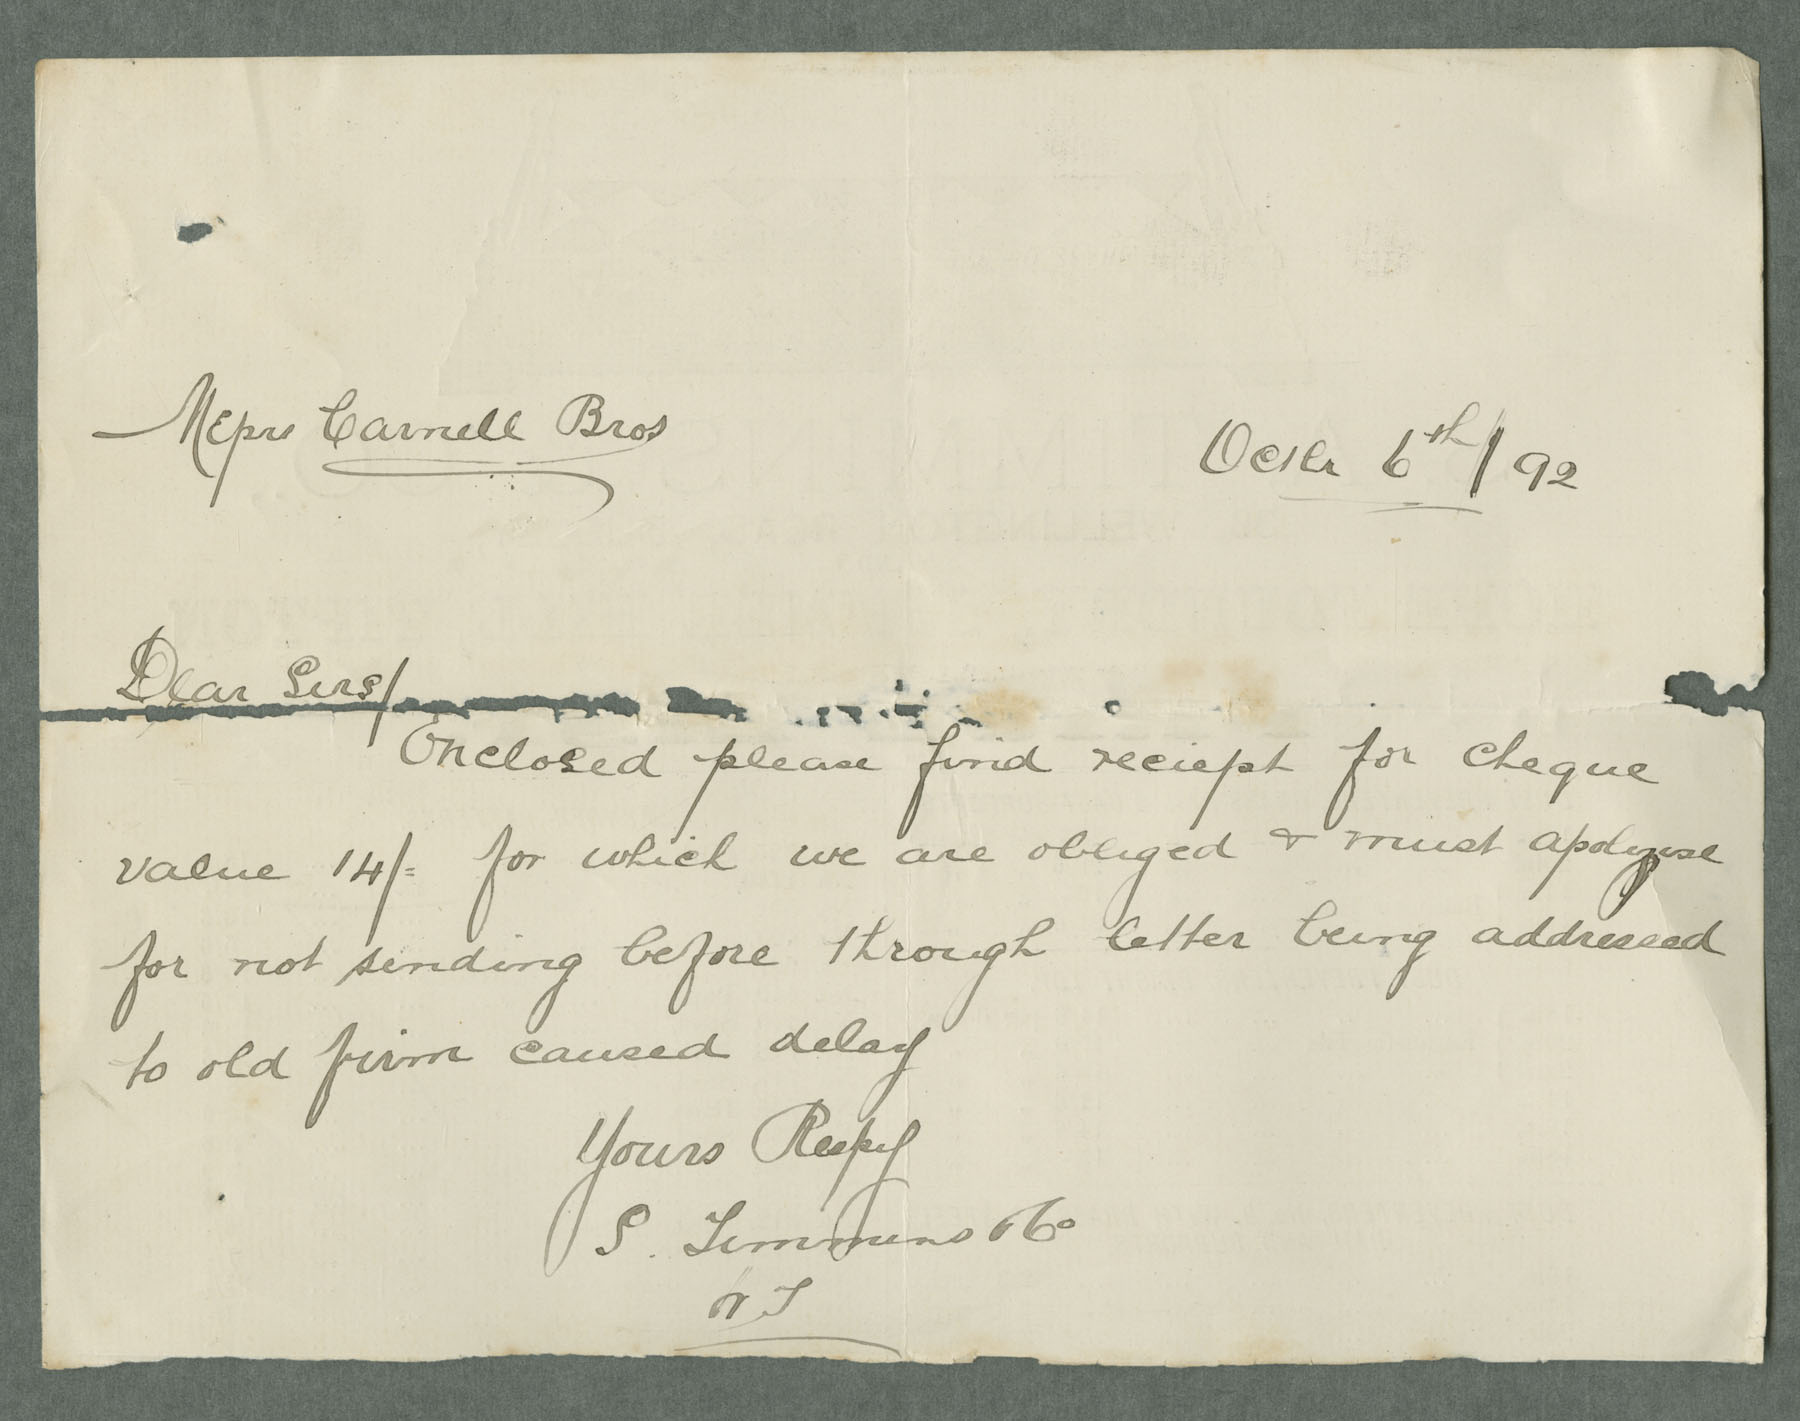 Messrs Carnell Bros
Octbr 6th/92
Dear Sirs/
Enclosed please find reciept for cheque
value 14/- for which we are obliged & must apolygise
for not sending before through letter being addressed
to old firm caused delay
Yours Respy
S. Timmins & Co